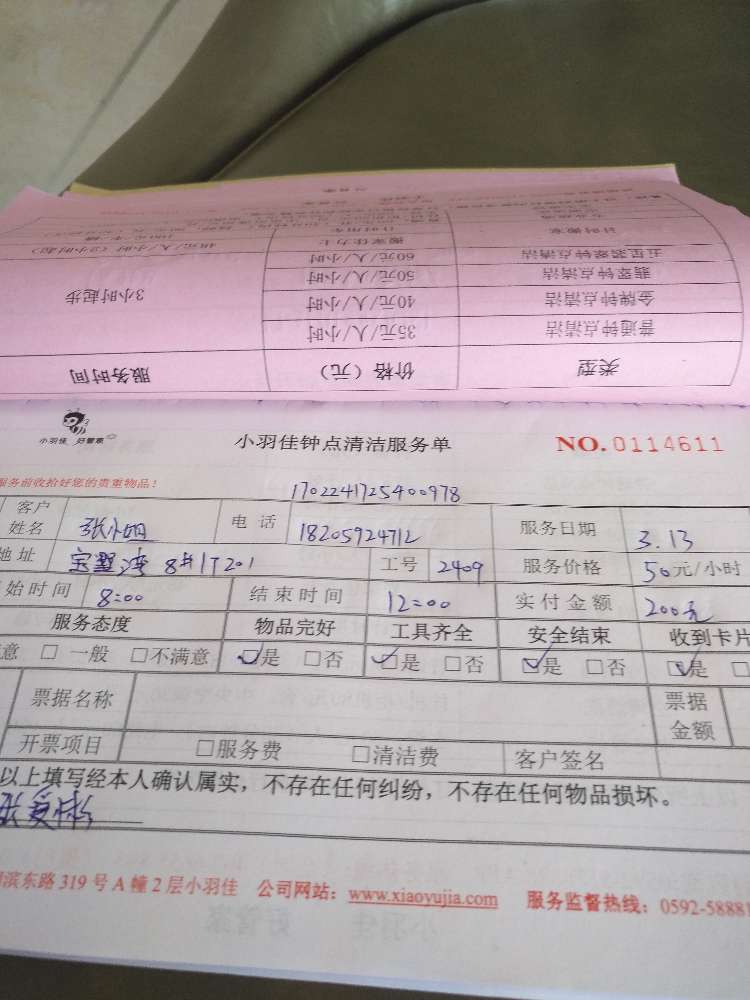 类型 价格(元) 服务时间
普通钟点清洁 35元/人/小时 3小时起步
金牌钟点清洁 40元/人/小时
翡翠钟点清洁 50元/人/小时
五星翡翠钟点清洁 60元/人/小时
计时搬家 搬家任力士
小羽佳 好管家 小羽佳钟点清洁服务单 NO.0114611
服务前收拾好您的贵重物品!
1702241725400978
客户姓名 张小姐 电话 18205924712 服务日期 3.13
地址 8#1T201 工号 2409 服务价格 50元/小时
始时间 8:00 结束时间 12:00 实付金额 200元
服务态度 物品完好 工具齐全 安全结束 收到卡片
意 □一般 □不满意 ☑是 □否 ☑是 □否 ☑是 □否 ☑是 □
票据名称 票据金额
开票项目 □服务费 □清洁费 客户签名
以上填写经本人确认属实,不存在任何纠纷,不存在任何物品损坏。
滨东路319号A幢2层小羽佳 公司网站:www.xiaoyujia.com 服务监督热线:0592-58881